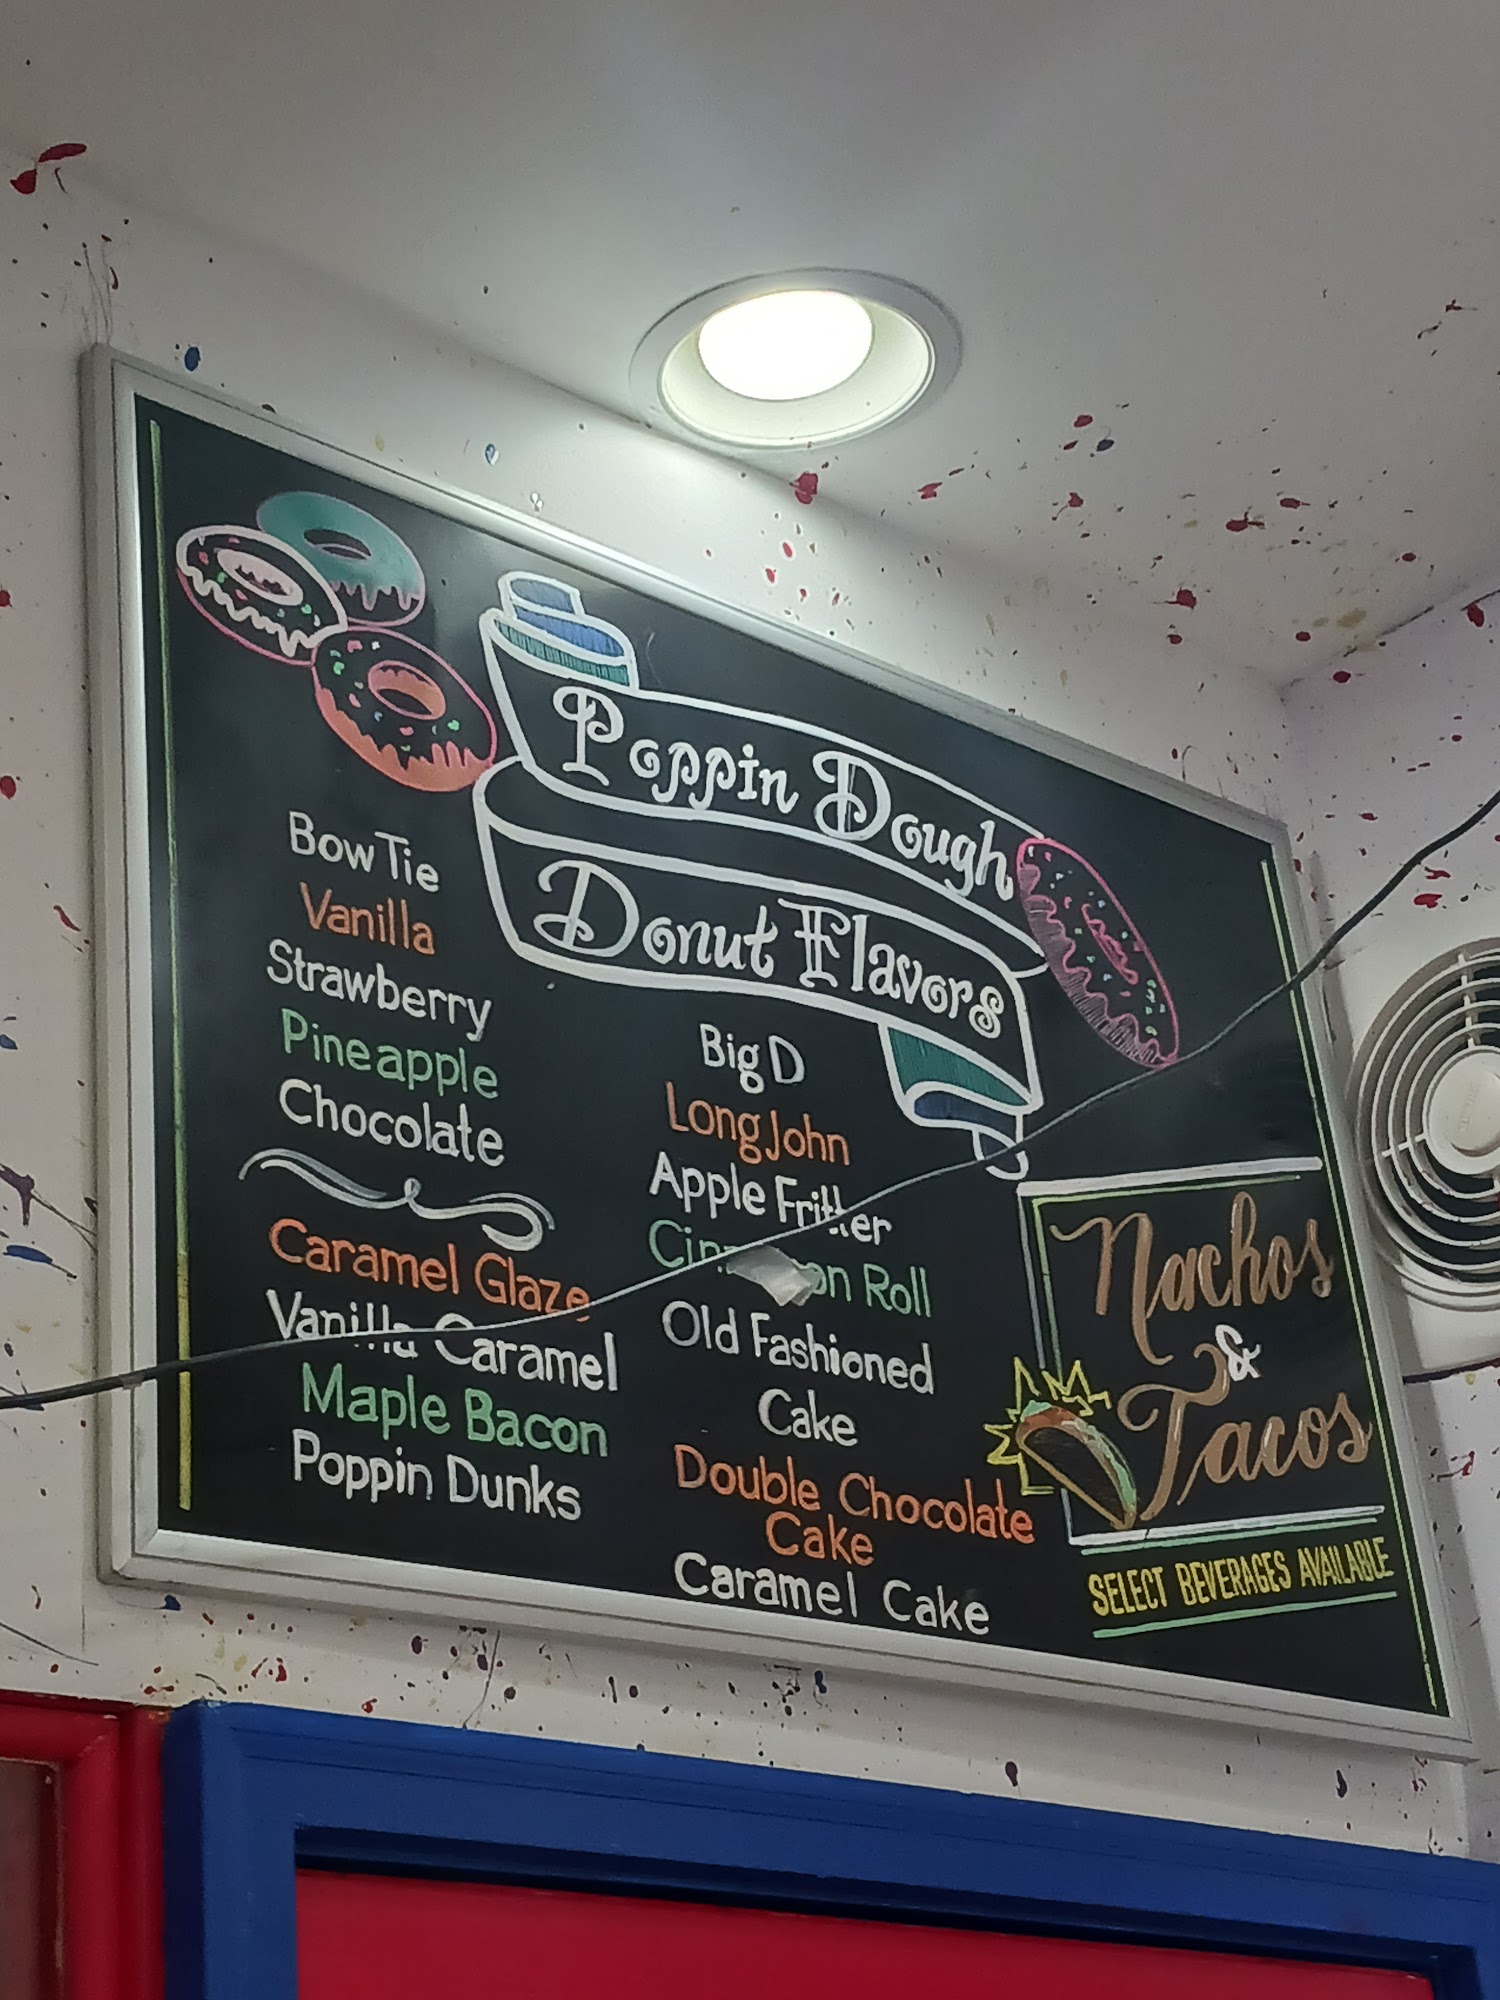 Poppin Dough
Donut Flavors
Bow Tie
Vanilla
Strawberry
Pineapple
Chocolate
Caramel Glaze
Vanilla Caramel
Maple Bacon
Poppin Dunks
Big D
Long John
Apple Fritter
Cinnamon Roll
Old Fashioned
Cake
Double Chocolate
Cake
Caramel Cake
Nachos
&
Tacos
SELECT BEVERAGES AVAILABLE